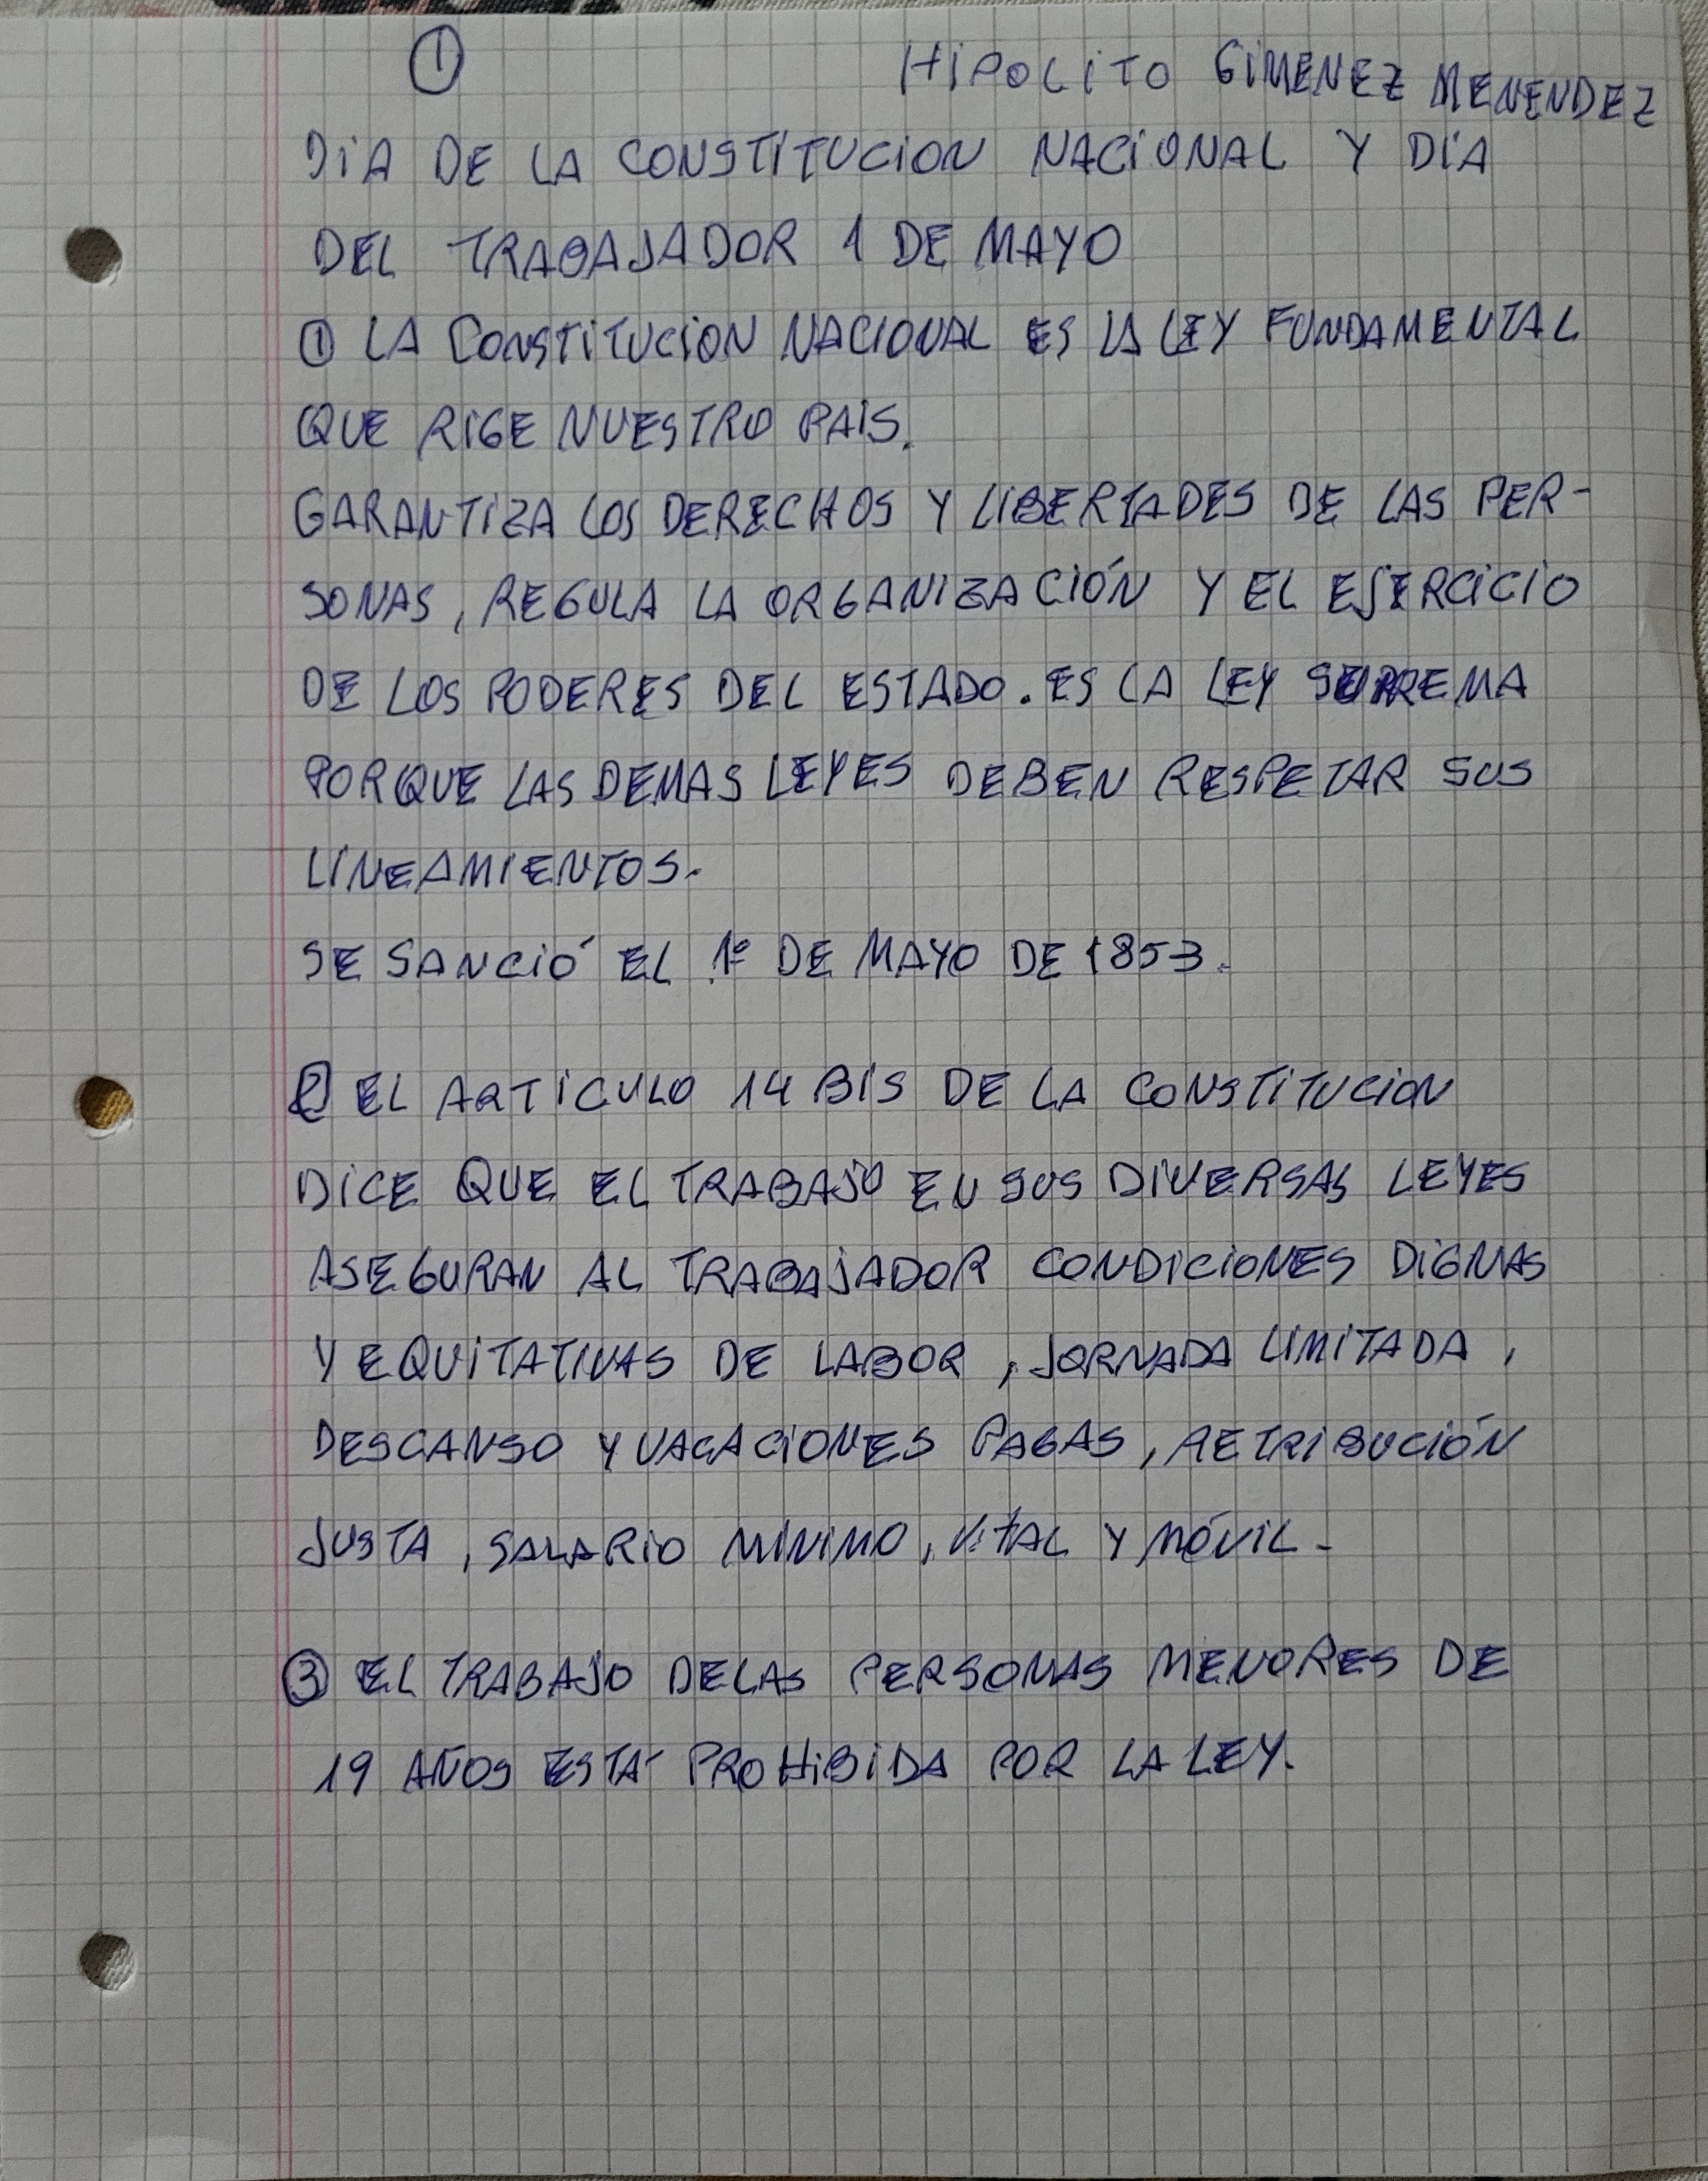 ① HIPOLITO GIMENEZ MENENDEZ
DIA DE LA CONSTITUCION NACIONAL Y DÍA
DEL TRABAJADOR 1 DE MAYO
① LA CONSTITUCION NACIONAL ES LA LEY FUNDAMENTAL
QUE RIGE NUESTRO PAIS.
GARANTIZA LOS DERECHOS Y LIBERTADES DE LAS PER-
SONAS, REGULA LA ORGANIZACIÓN Y EL EJERCICIO
DE LOS PODERES DEL ESTADO. ES LA LEY SUPREMA
PORQUE LAS DEMAS LEYES DEBEN RESPETAR SUS
LINEAMIENTOS.
SE SANCIÓ EL 1º DE MAYO DE 1853.
② EL ARTICULO 14 BIS DE LA CONSTITUCION
DICE QUE EL TRABAJO EN SUS DIVERSAS LEYES
ASEGURAN AL TRABAJADOR CONDICIONES DIGNAS
Y EQUITATIVAS DE LABOR, JORNADA LIMITADA,
DESCANSO Y VACACIONES PAGAS, RETRIBUCIÓN
JUSTA, SALARIO MINIMO, VITAL Y MÓVIL.
③ EL TRABAJO DE LAS PERSONAS MENORES DE
19 AÑOS ESTÁ PROHIBIDA POR LA LEY.